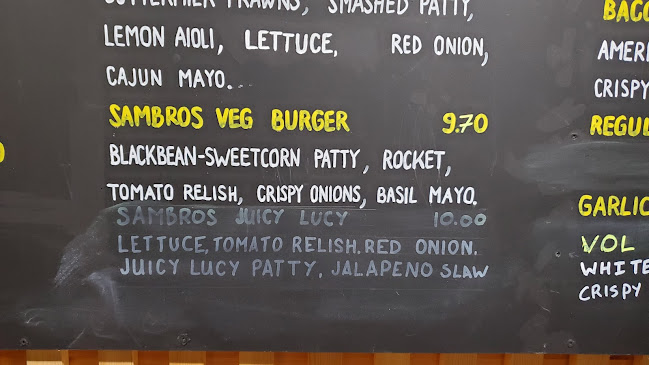 BUTTERFLIER PRAWNS, SMASHED PATTY,
LEMON AIOLI, LETTUCE, RED ONION,
CAJUN MAYO..
SAMBROS VEG BURGER 9.70
BLACKBEAN-SWEETCORN PATTY, ROCKET,
TOMATO RELISH, CRISPY ONIONS, BASIL MAYO.
SAMBROS JUICY LUCY 10.00
LETTUCE, TOMATO RELISH. RED ONION.
JUICY LUCY PATTY. JALAPENO SLAW
BACO
AMERI
CRISPY
REGUL
GARLIC
VOL
WHITE
CRISPY